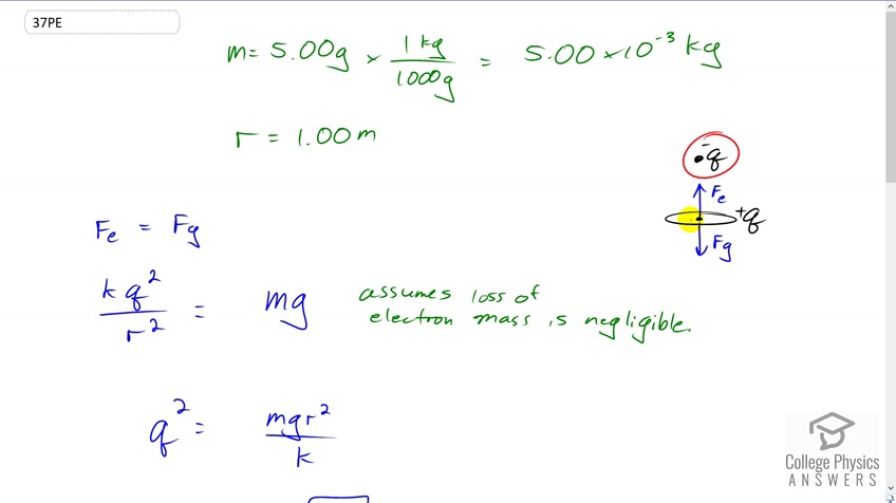 37PE
m = 5.00g × 1 kg / 1000g = 5.00 × 10⁻³ kg
r = 1.00 m
-q
Fe
+q
Fg
Fe = Fg
kq² / r² = mg
assumes loss of
electron mass is negligible.
q² = mgr² / k
College Physics
ANSWERS